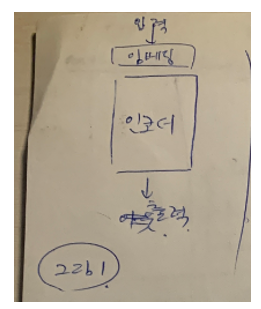 입력
임베딩
인코더
출력
그림1